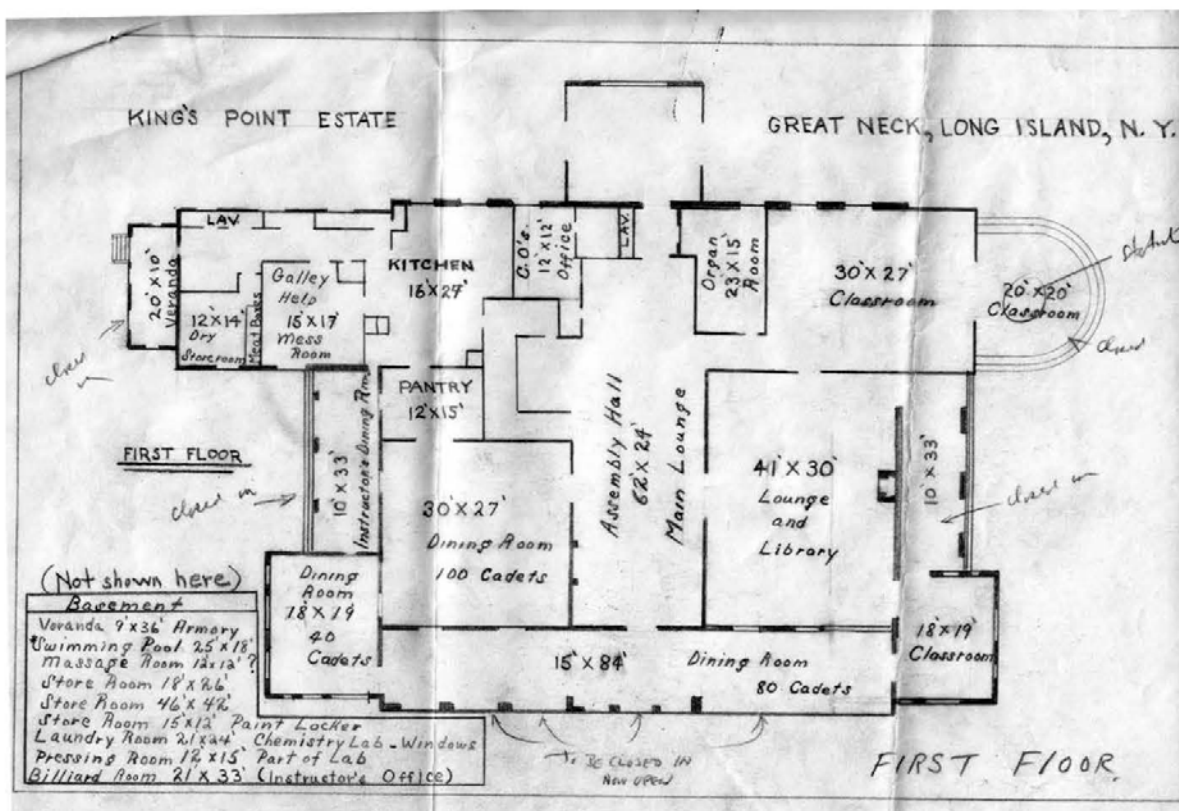 KING'S POINT ESTATE
GREAT NECK, LONG ISLAND, N.Y.
LAV.
20' X 10'
Veranda
12' X 14'
Dry
Storeroom
Meat Boxes
Galley
Help
15' X 17'
Mess
Room
KITCHEN
16' X 27'
C.O's.
12' X 12'
Office
LAV.
Organ
23 X 15'
Room
30' X 27'
Classroom
20' X 20'
Classroom
closed
closed
in
PANTRY
12' X 15'
FIRST FLOOR
closed in
10' X 33'
Instructor's Dining Rm.
30' X 27'
Dining Room
100 Cadets
Assembly Hall
62' X 24'
Main Lounge
41' X 30'
Lounge
and
Library
10' X 33'
closed in
Dining
Room
18' X 19'
40
Cadets
15' X 84'
Dining Room
80 Cadets
18' X 19'
Classroom
(Not shown here)
Basement
Veranda 9' X 36' Armory
*Swimming Pool 25' X 18'
Massage Room 12 X 12' ?
Store Room 18' X 26'
Store Room 46' X 42'
Store Room 15' X 12' Paint Locker
Laundry Room 21 X 24' Chemistry Lab - Windows
Pressing Room 12' X 15' Part of Lab
Billiard Room 21 X 33' (Instructor's Office)
To BE CLOSED IN
NOW OPEN
FIRST FLOOR